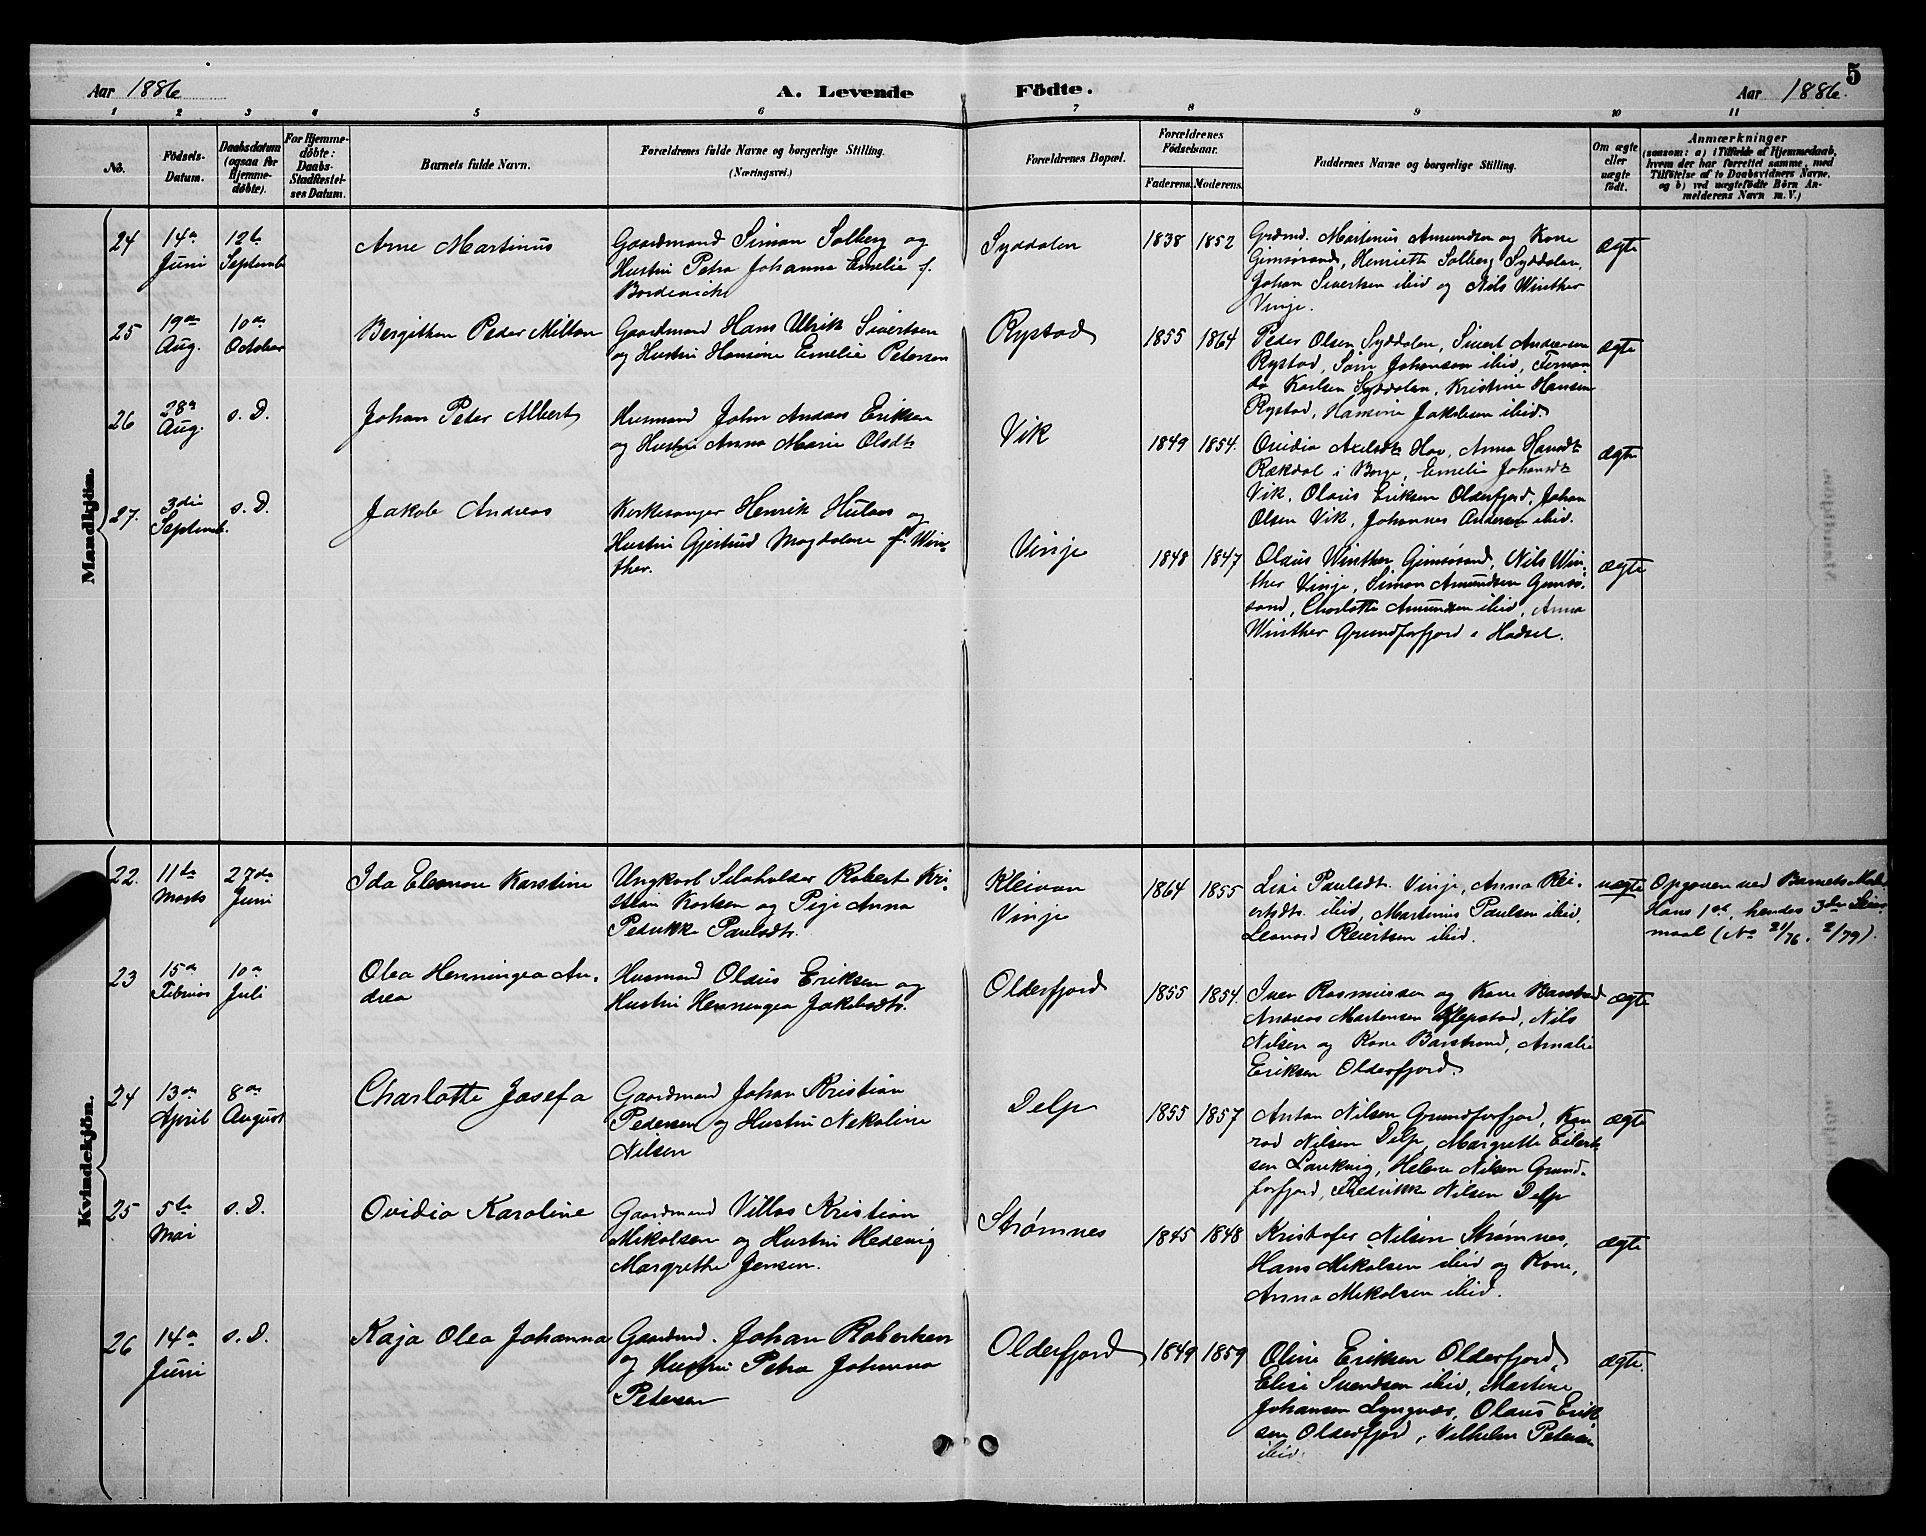 5
Aar 1886 A. Levende Födte. Aar 1886.
1 2 3 4 5 6 7 8 9 10 11
No.
Födsels-
Datum.
Daabsdatum
(ogsaa for
Hjemme-
döbte).
For Hjemme-
döbte:
Daabs-
Stadfæstel-
ses Datum.
Barnets fulde Navn.
Forældrenes fulde Navne og borgerlige Stilling.
(Næringsvei.)
Forældrenes Bopæl.
Forældrenes
Födselsaar.
Faderens. Moderens.
Faddernes Navne og borgerlige Stilling.
Om ægte
eller
uægte
födt.
Anmærkninger
(saasom: a) i Tilfælde af Hjemmedaab,
hvem der har forrettet samme, med
Tilföielse af to Daabsvidners Navne,
og b) ved uægtefödte Börn An-
melderens Navn m. V.)
Mandkjön.
24
14de
Juni
12te
Septembe
Arne Martinus
Gaardmand Simon Solberg og
Hustru Petra Johanna Emelie f.
Bordevich
Syddalen
1838 1852
Grdmd. Martinus Amundsen og Kone
Gimsøsand, Henriette Solberg Syddalen,
Johan Sivertsen ibid og Nils Winther
Vinje.
ægte
25
19de
Aug.
10de
October
Bergithon Peder Milton
Gaardmand Hans Ulrik Sivertsen
og Hustru Hansine Emelie Petersen
Rystad
1855 1864
Peder Olsen Syddalen, Sivert Andersen
Rystad, Sørn Johansen ibid, Fernan
da Karlsen Syddalen, Kristine Hansen
Rystad, Hansine Jakobsen ibid.
ægte
26
28de
Aug.
s. D.
Johan Peter Albert
Husmand John Andas Eriksen
og Hustru Anna Marie Olsdtr
Vik
1849 1854.
Ovidia Axelsdtr Hov, Anna Hansdtr
Rækdal i Borge, Emelie Johansdtr
Vik, Olaus Eriksen Olderfjord, Johan
Olsen Vik, Johannes Andersen ibid.
ægte
27.
3die
Septemb.
s. D.
Jakob Andreas
Kirkesanger Henrik Hulaas og
Hustru Gjertrud Magdalene f. Win-
ther.
Vinje
1848 1847
Olaus Winther Gimsøsand, Nils Win-
ther Vinje, Simon Amundsen Gimsø-
sand, Charlotte Amundsen ibid, Anna
Winther Grundforfjord i Hadsel.
ægte
Kvindekjön.
22.
11te
Marts
27de
Juni
Ida Eleonore Karstine
Ungkarl Selvholder Robert Kri-
stian Karlsen og Pige Anna
Pedrikke Paulsdtr.
Kleivan
Vinje
1864 1855
Lise Paulsdtr. Vinje, Anna Rei-
ertsdtr. ibid, Martinus Paulsen ibid,
Leonard Reiertsen ibid.
uægte
Opgaven ved Barnets Mod
Hans 1st, hendes 3die Leier-
maal (No 21/76. 2/79).
23
15de
Februar
10de
Juli
Olea Henningea An-
drea
Husmand Olaus Eriksen og
Hustru Henningea Jakobsdtr.
Olderfjord
1855 1854.
Iver Rasmussen og Kone Barstrand
Andreas Martensen Klepstad, Nils
Nilsen og Kone Barstrand, Amalie
Eriksen Olderfjord.
ægte
24
13de
April
8de
August
Charlotte Josefa
Gaardmand Johan Kristian
Pedersen og Hustru Nekoline
Nilsen
Delp
1855 1857
Anton Nilsen Grundforfjord, Kon
rad Nilsen Delp, Margrethe Eilert
sen Laukvig, Helene Nilsen Grund-
forfjord, Fredrikke Nilsen Delp
ægte
25
5te
Mai
s. D.
Ovidia Karoline
Gaardmand Villas Kristian
Mikalsen og Hustru Hedevig
Margrethe Jensen.
Strømnes
1845 1848
Kristofer Nilsen Strømnes,
Hans Mikalsen ibid og Kone,
Anna Mikalsen ibid.
ægte
26
14de
Juni
s. D.
Kaja Olea Johanna
Gaardmd. Johan Robertsen
og Hustru Petra Johanna
Petersen
Olderfjord
1849 1859
Oline Eriksen Olderfjord,
Elise Svendsen ibid, Martine
Johansen Lyngvær, Olaus Erik
sen Olderfjord, Vilhelm Petersen
ibid.
ægte.